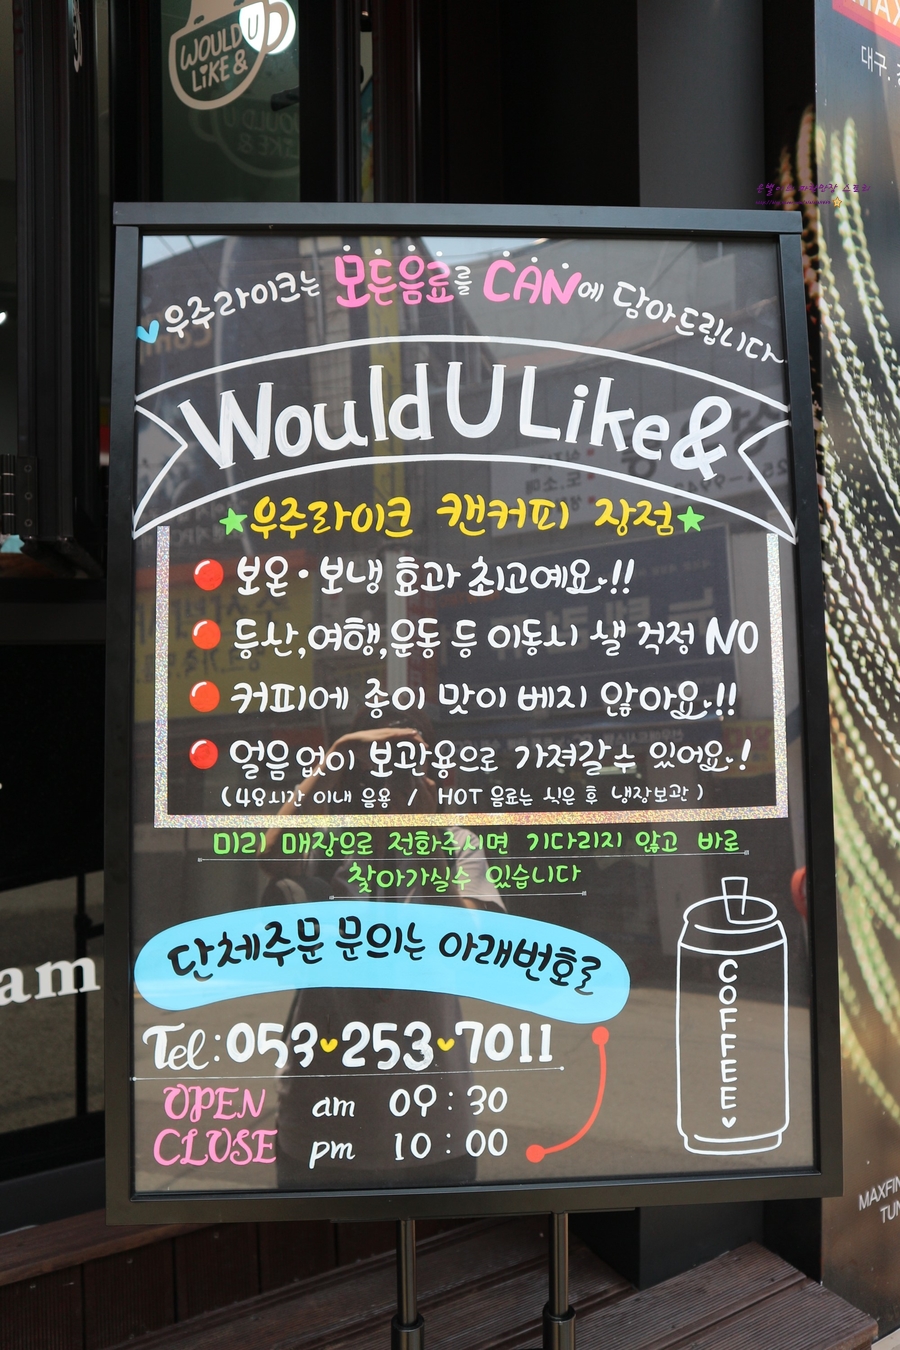 WOULD U
LiKE &
MAX
대구.
우주라이크는 모든음료를 CAN에 담아드립니다~
Would U Like &
우주라이크 캔커피 장점
보온·보냉 효과 최고예요!!
등산,여행,운동 등 이동시 샐 걱정 NO
커피에 종이 맛이 베지 않아요!!
얼음없이 보관용으로 가져갈수 있어요!
(48시간 이내 음용 / HOT 음료는 식은 후 냉장보관)
미리 매장으로 전화주시면 기다리지 않고 바로
찾아가실수 있습니다
단체주문 문의는 아래번호로
Tel:053 253 7011
OPEN am 09:30
CLOSE pm 10:00
COFFEE
am